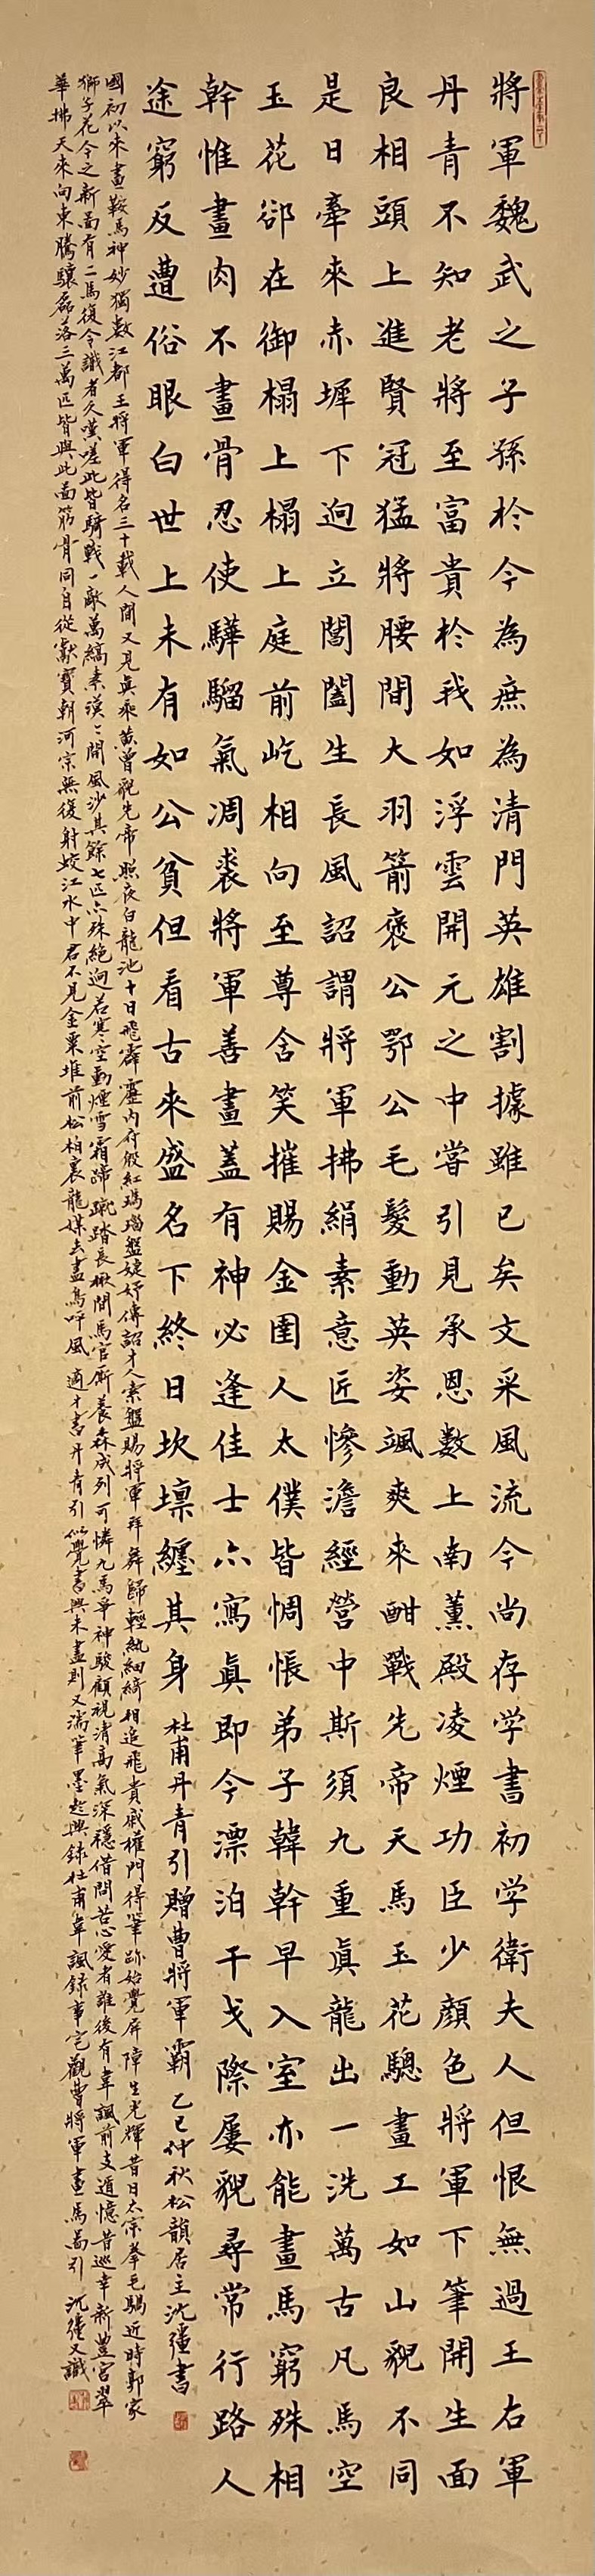 將軍魏武之子孫於今為庶為清門英雄割據雖已矣文采風流今尚存学書初学衛夫人但恨無過王右軍
丹青不知老將至富貴於我如浮雲開元之中嘗引見承恩數上南薰殿凌煙功臣少顏色將軍下筆開生面
良相頭上進賢冠猛將腰間大羽箭褒公鄂公毛髮動英姿颯爽來酣戰先帝天馬玉花驄畫工如山貌不同
是日牽來赤墀下迥立閶闔生長風詔謂將軍拂絹素意匠慘澹經營中斯須九重真龍出一洗萬古凡馬空
玉花卻在御榻上榻上庭前屹相向至尊含笑摧賜金圉人太僕皆惆悵弟子韓幹早入室亦能畫馬窮殊相
幹惟畫肉不畫骨忍使驊騮氣凋喪將軍善畫蓋有神必逢佳士亦寫真即今漂泊干戈際屢貌尋常行路人
途窮反遭俗眼白世上未有如公貧但看古來盛名下終日坎壈纏其身 杜甫丹青引贈曹將軍霸 乙巳仲秋松韻居主沈彊書
國初以來畫鞍馬神妙獨數江都王將軍得名三十載人間又見真乘黃曾貌先帝照夜白龍池十日飛霹靂內府殷紅瑪瑙盤婕妤傳詔才人索盤賜將軍拜舞歸輕紈細綺相追飛貴戚權門得筆跡始覺屏障生光輝昔日太宗拳毛騧近時郭家
獅子花今之新圖有二馬復令識者久嘆嗟此皆騎戰一敵萬縞素漠〻開風沙其餘七匹亦殊絕迥若寒空動煙雪霜蹄蹴踏長楸間馬官廝養森成列可憐九馬爭神駿顧視清高氣深穩借問苦心愛者誰後有韋諷前支遁憶昔巡幸新豊宮翠
華拂天來向東騰驤磊落三萬匹皆與此圖筋骨同自從獻寶朝河宗無復射蛟江水中君不見金粟堆前松柏裏龍媒去盡鳥呼風 適才書丹青引似覺書興未盡則又濡筆墨趁興錄杜甫韋諷錄事宅觀曹將軍畫馬圖引 沈彊又識